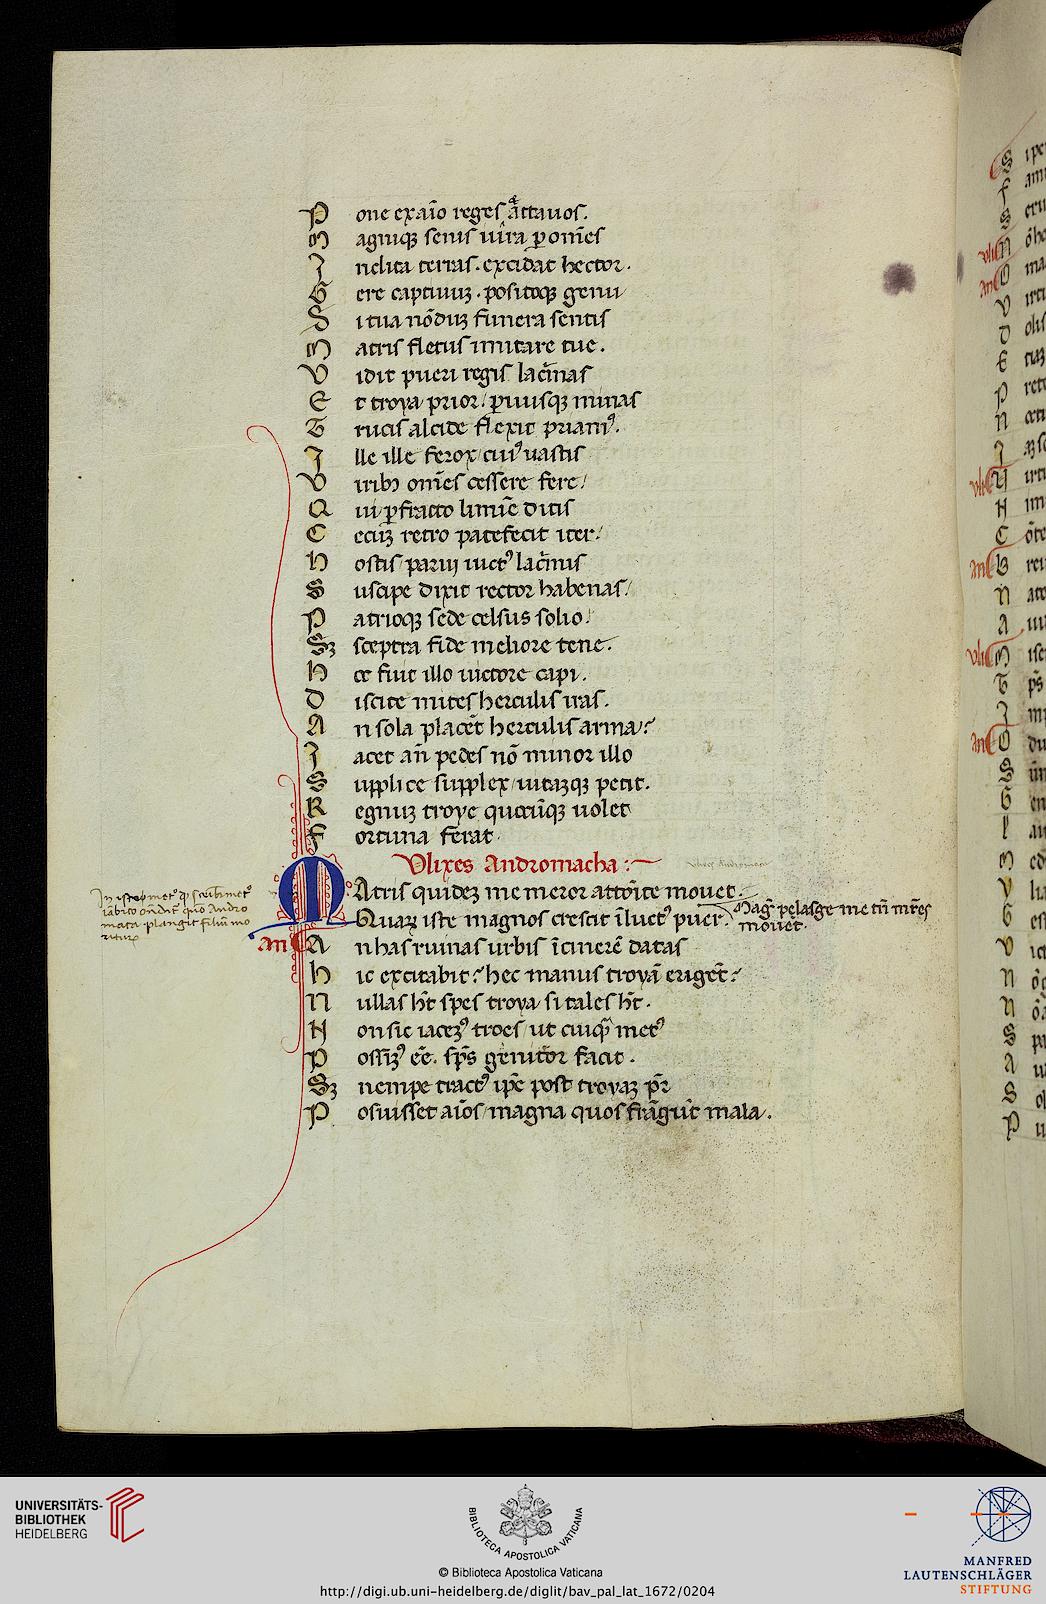 P one exaĩo reges actauos.
M agniq; senis iura ꝑ om̃es
I nclita terras. excidat hector.
G ere captiuuꝫ. positoq; genu
S i tua nõduꝫ funera sentis
M atris fletus imitare tue.
V idit pueri regis lac̃mas
E t troya prior/ ꝑuusq; minas
T rucis alcide flexit priamꝰ.
I lle ille ferox/ cuiꝰ uastis
V iribꝫ om̃es cessere fere/
Q ui ꝑfracto limiẽ ditis
C ecuꝫ retro patefecit iter/
H ostis/ parui uictꝰ lac̃mis
S uscipe dixit rector habenas/
P atrioq; sede celsus solio/
Sꝫ sceptra fide meliore tene.
H oc fuit illo uictore capi.
D iscite mites herculis iras.
A n sola placẽt herculis arma?
I acet añ pedes nõ minor illo
S upplice supplex/ uitaꝫq; petit.
R egnuꝫ troye quocũq; uolet
F ortuna ferat.
Vlixes Andromacha:
MAtris quideꝫ me meror attoĩte mouet.
Quaꝝ iste magnos crescit ĩ luctꝰ puer.
Mag̃ pelasge me tñ mr̃es
mouẽt.
an A n has ruinas urbis ĩ cinerẽ datas
H ic excitabit? hec manus troyã erigẽt?
N ullas h̃t spes troya/ si tales h̃t.
N on sic iacemꝰ troes/ ut cuiq̃ metꝰ
P ossimꝰ eẽ. sp̃s genitor facit.
Sꝫ nempe tractꝰ ip̃e post troyaꝫ pr̃
P osuisset aĩos/ magna quos frãgũt mala.
UNIVERSITÄTS-
BIBLIOTHEK
HEIDELBERG
BIBLIOTECA APOSTOLICA VATICANA
© Biblioteca Apostolica Vaticana
http://digi.ub.uni-heidelberg.de/diglit/bav_pal_lat_1672/0204
MANFRED
LAUTENSCHLÄGER
STIFTUNG